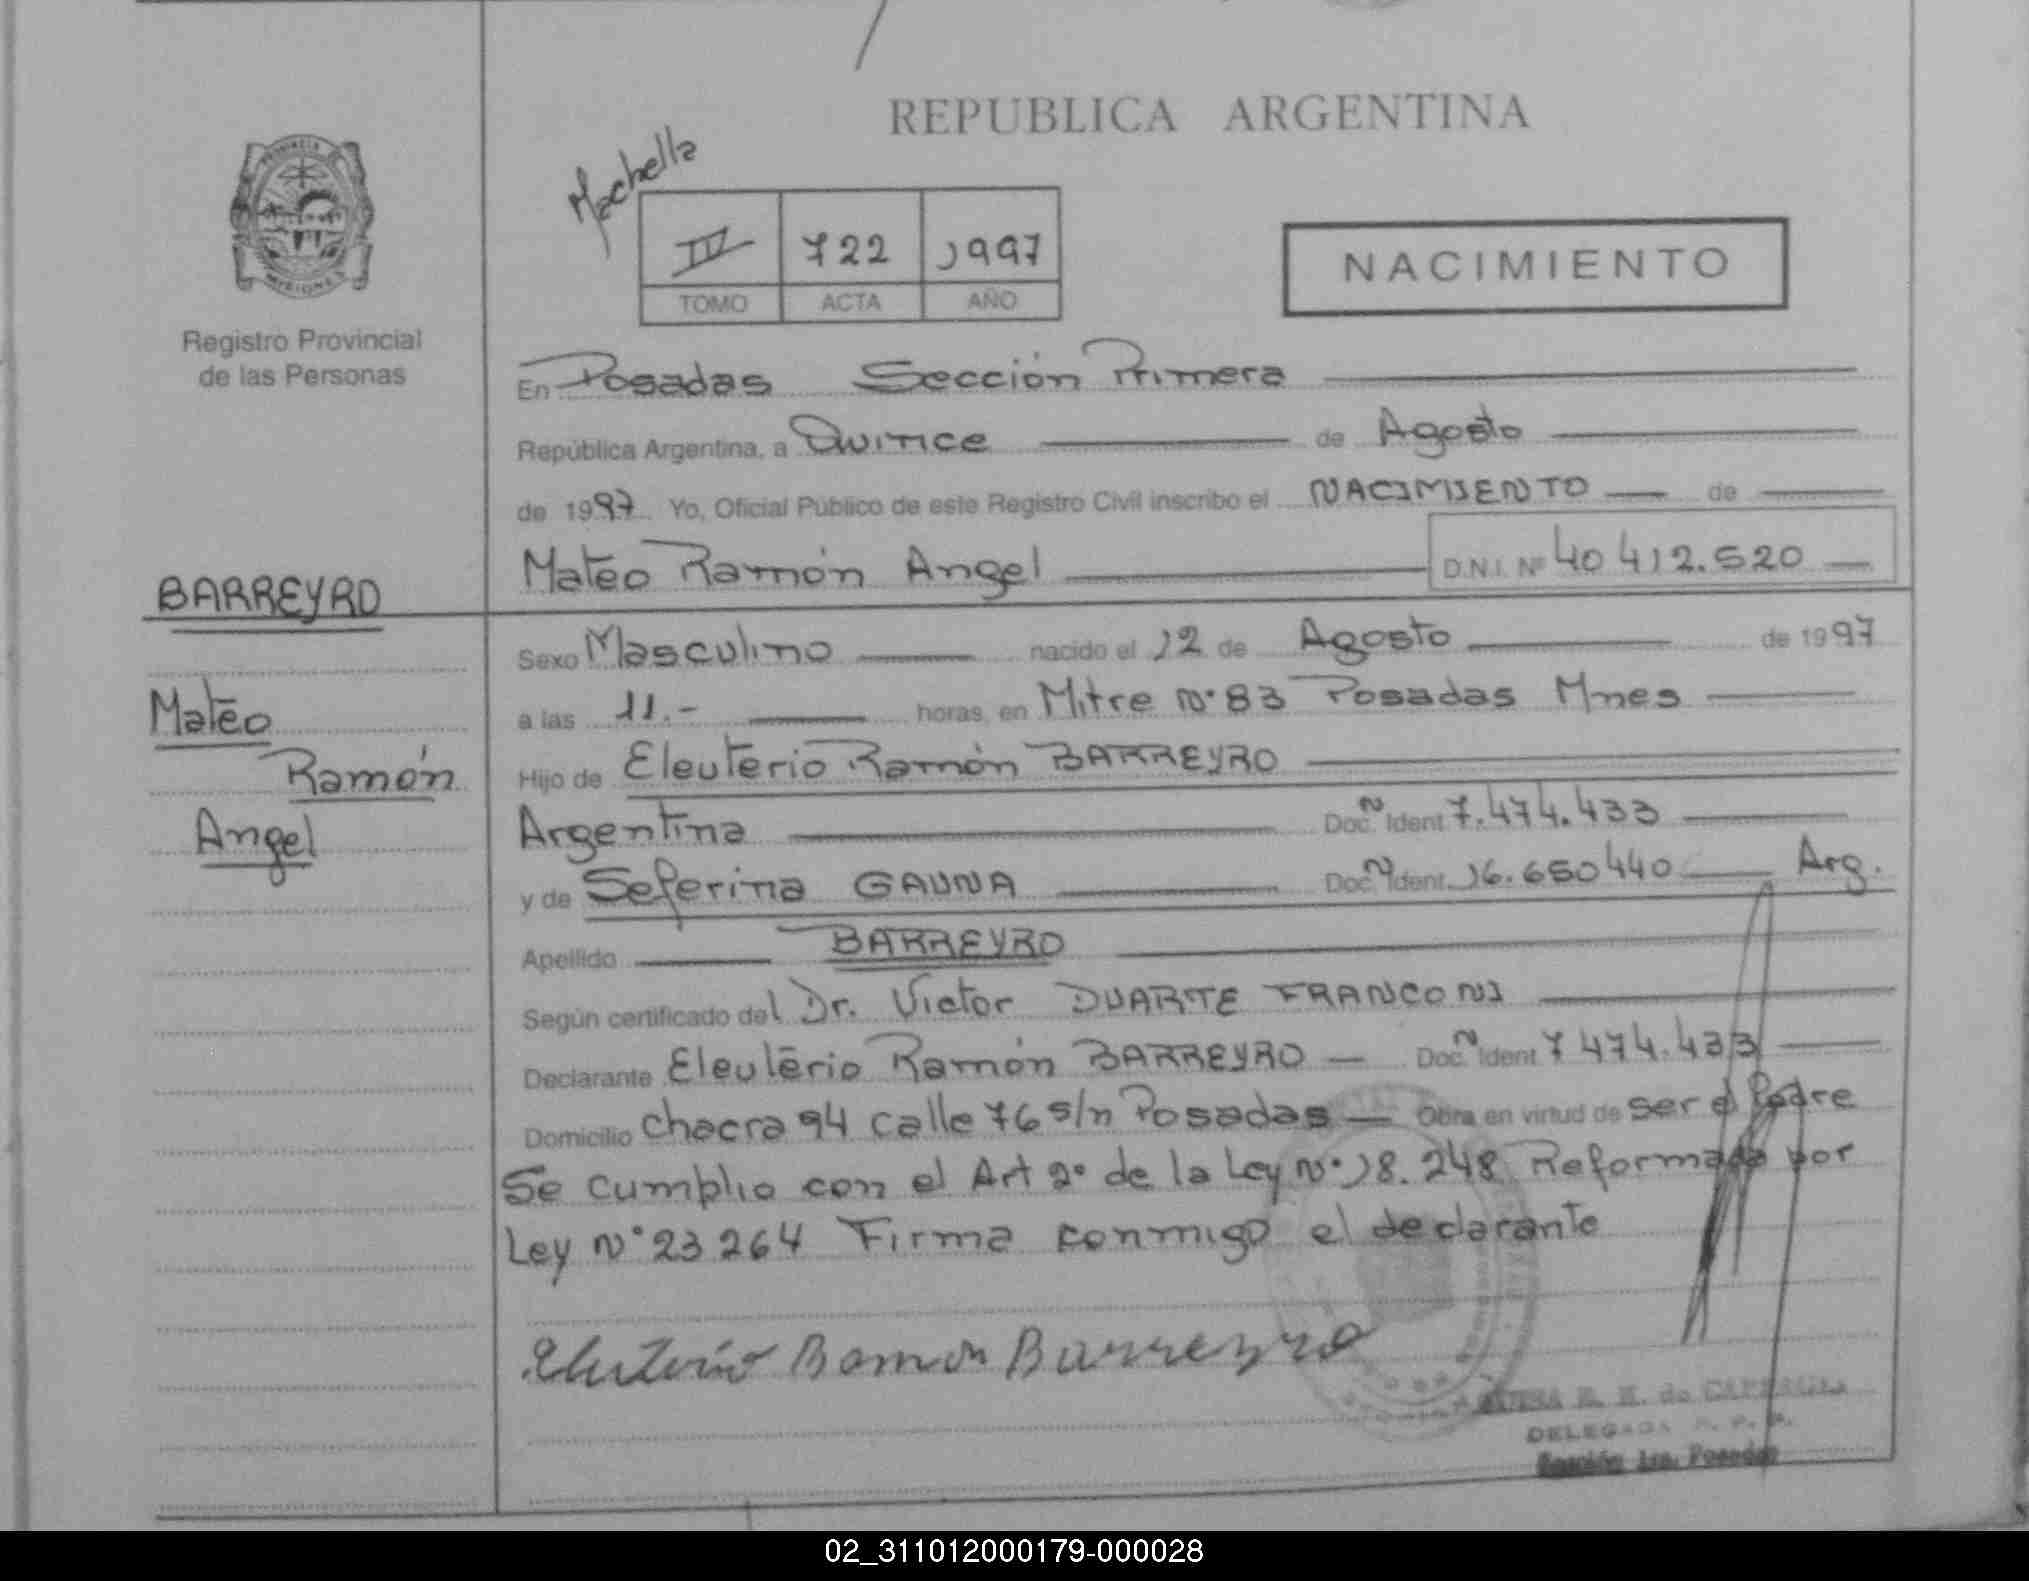 REPUBLICA ARGENTINA
Machella
PROVINCIA DE
MISIONES
Registro Provincial
de las Personas
IV 722 1997
TOMO ACTA AÑO
NACIMIENTO
En Posadas Sección Primera
República Argentina, a Quince de Agosto
de 1997 Yo, Oficial Público de este Registro Civil inscribo el NACIMIENTO de
Mateo Ramón Angel D.N.I. Nº 40 412.520
BARREYRO
Mateo
Ramón
Angel
Sexo Masculino nacido el 12 de Agosto de 1997
a las 11.- horas, en Mitre Nº 83 Posadas Mnes
Hijo de Eleuterio Ramón BARREYRO
Argentina Doc. Ident 7.474.433
y de Seferina GAUNA Doc. Ident. 16.650440 Arg.
Apellido BARREYRO
Según certificado del Dr. Victor DUARTE FRANCONI
Declarante Eleuterio Ramón BARREYRO Doc. Ident 7 474.433
Domicilio Chacra 94 calle 76 s/n Posadas Obra en virtud de ser el Padre
Se cumplio con el Art 2º de la Ley Nº 18.248 Reformada por
Ley Nº 23 264 Firma conmigo el declarante
Eleuterio Ramon Barreyro
R. de
DELEGADA R. P. P.
Sección 1ra. Posadas
02_311012000179-000028